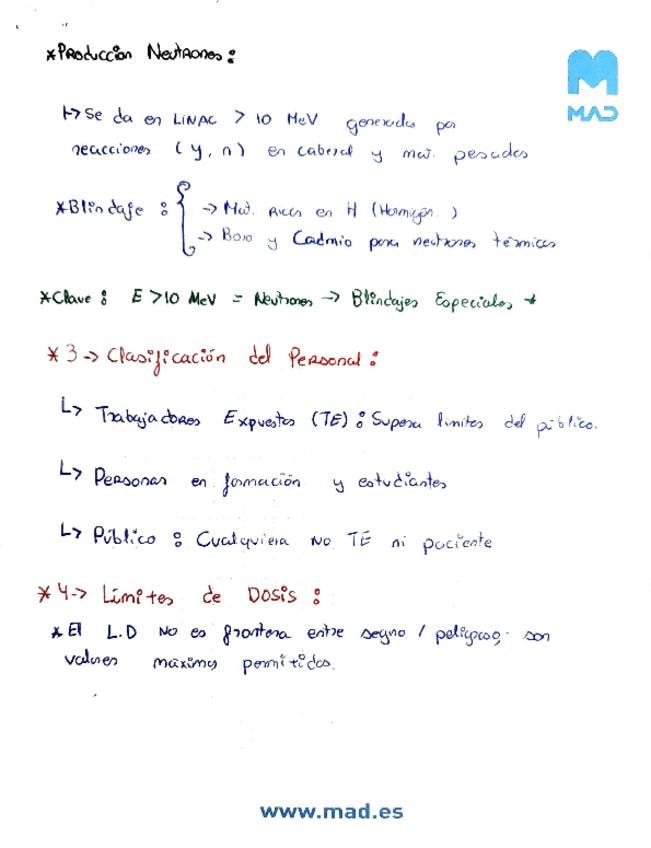 * Producción Neutrones:
MAD
↦ Se da en LINAC > 10 MeV generados por
reacciones (γ, n) en cabezal y mat. pesados
* Blindaje : { → Mat. Ricos en H (Hormigón.)
→ Boro y Cadmio para neutrones térmicos
* Clave : E > 10 MeV = Neutrones → Blindajes Especiales *
* 3 → Clasificación del Personal :
↳ Trabajadores Expuestos (TE) : Supera limites del público.
↳ Personas en formación y estudiantes
↳ Público : Cualquiera NO TE ni paciente
* 4 → Límites de Dosis :
* El L.D NO es frontera entre seguro / peligroso, son
valores máximos permitidos.
www.mad.es